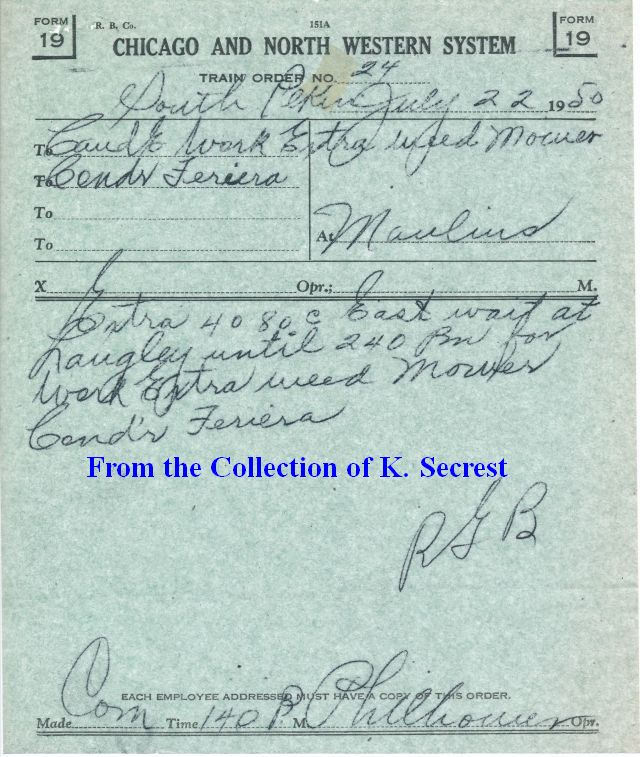 FORM 19 R. B. Co. 151A FORM 19
CHICAGO AND NORTH WESTERN SYSTEM
TRAIN ORDER NO. 24
South Pekin July 22 1950
To C and E Work Extra weed Mower
To Cond'r Feriera
To
To At Manlius
X Opr.; M.
Extra 4080 c East wait at
Langley until 240 Pm for
work Extra weed Mower
Cond'r Feriera
From the Collection of K. Secrest
RGB
EACH EMPLOYEE ADDRESSED MUST HAVE A COPY OF THIS ORDER.
Made Com Time 140 P M Opr.